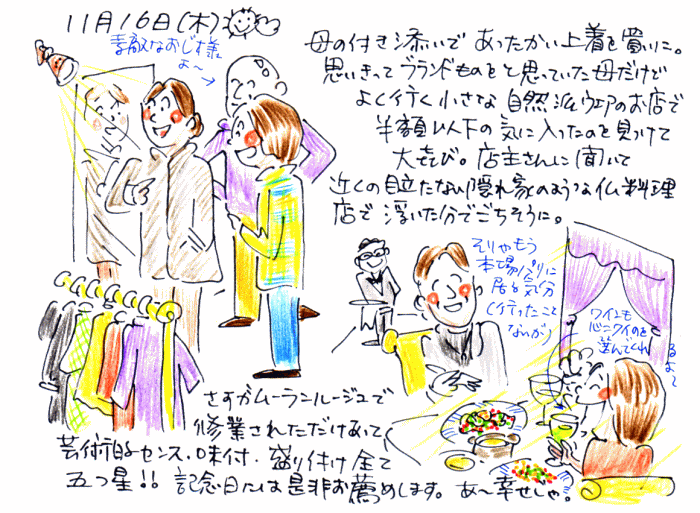 11月16日(木)
素敵なおじ様
よ〜→
母の付き添いで あったかい上着を買いに。
思いきって ブランドものをと思っていた母だけど
よく行く小さな 自然派WEARのお店で
半額以下の気に入ったのを見つけて
大喜び。店主さんに聞いて
近くの目立たない隠れ家のような仏料理
店で 浮いた分でごちそうに。
そりゃもう
本場パリに
居る気分
(行ったこと
ないが)
ワインも
選んでくれ
るよ〜
さすがムーランルージュで
修業されただけあって
芸術的センス・味付・盛り付け 全て
五つ星!! 記念日には是非お薦めします。あ〜幸せじゃ。